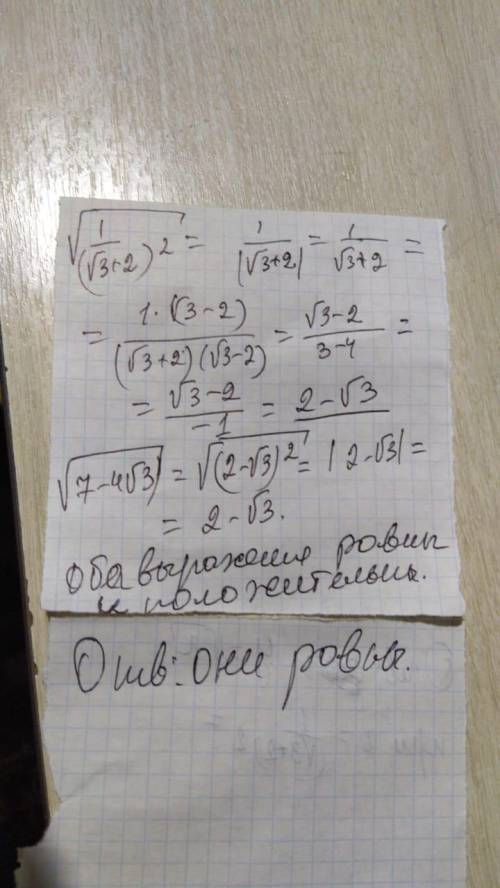 √(1/(√3+2)²) = 1/|√3+2| = 1/(√3+2) =
= 1·(√3-2)/((√3+2)(√3-2)) = (√3-2)/(3-4) =
= (√3-2)/(-1) = 2-√3
√(7-4√3) = √((2-√3)²) = |2-√3| =
= 2-√3.
Оба выражения равны
и положительны.
Отв: они равны.